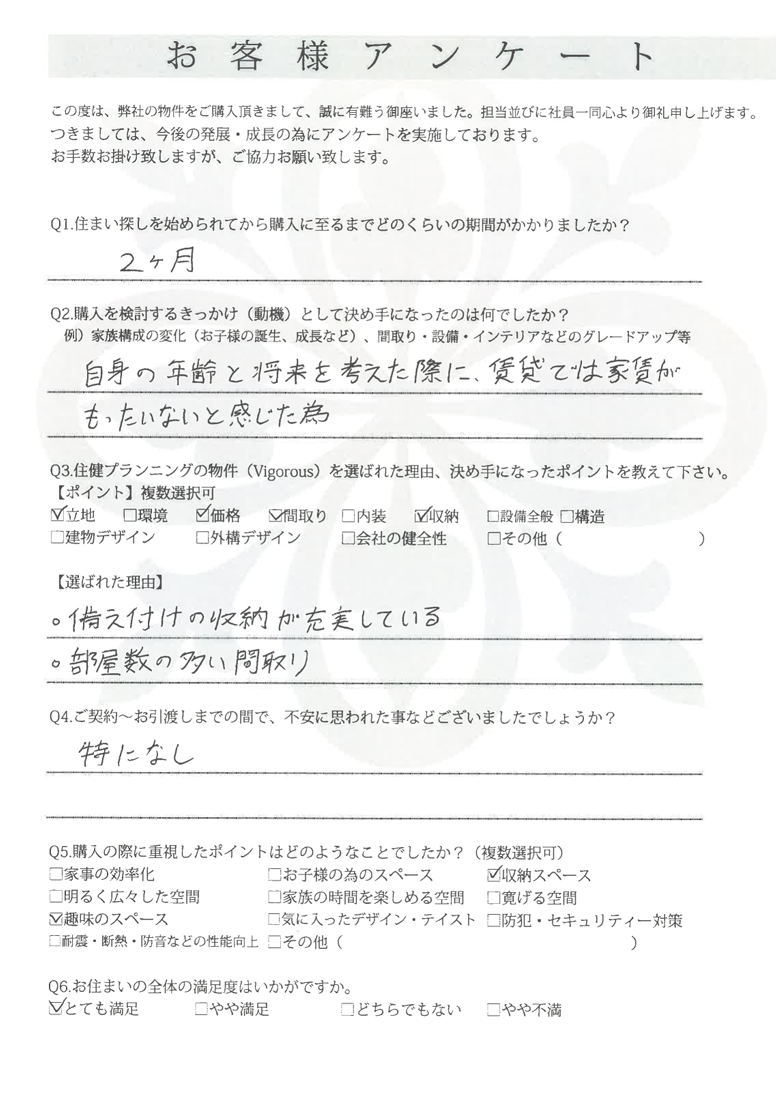 お客様アンケート
この度は、弊社の物件をご購入頂きまして、誠に有難う御座いました。担当並びに社員一同心より御礼申し上げます。
つきましては、今後の発展・成長の為にアンケートを実施しております。
お手数お掛け致しますが、ご協力お願い致します。
Q1.住まい探しを始められてから購入に至るまでどのくらいの期間がかかりましたか？
2ヶ月
Q2.購入を検討するきっかけ（動機）として決め手になったのは何でしたか？
例）家族構成の変化（お子様の誕生、成長など）、間取り・設備・インテリアなどのグレードアップ等
自身の年齢と将来を考えた際に、賃貸では家賃が
もったいないと感じた為
Q3.住健プランニングの物件（Vigorous）を選ばれた理由、決め手になったポイントを教えて下さい。
【ポイント】複数選択可
☑立地 ☐環境 ☑価格 ☑間取り ☐内装 ☑収納 ☐設備全般 ☐構造
☐建物デザイン ☐外構デザイン ☐会社の健全性 ☐その他（ ）
【選ばれた理由】
○備え付けの収納が充実している
○部屋数の多い間取り
Q4.ご契約〜お引渡しまでの間で、不安に思われた事などございましたでしょうか？
特になし
Q5.購入の際に重視したポイントはどのようなことでしたか？（複数選択可）
☐家事の効率化 ☐お子様の為のスペース ☑収納スペース
☐明るく広々した空間 ☐家族の時間を楽しめる空間 ☐寛げる空間
☑趣味のスペース ☐気に入ったデザイン・テイスト ☐防犯・セキュリティー対策
☐耐震・断熱・防音などの性能向上 ☐その他（ ）
Q6.お住まいの全体の満足度はいかがですか。
☑とても満足 ☐やや満足 ☐どちらでもない ☐やや不満